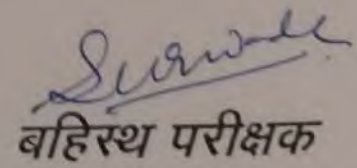 बहिस्थ परीक्षक